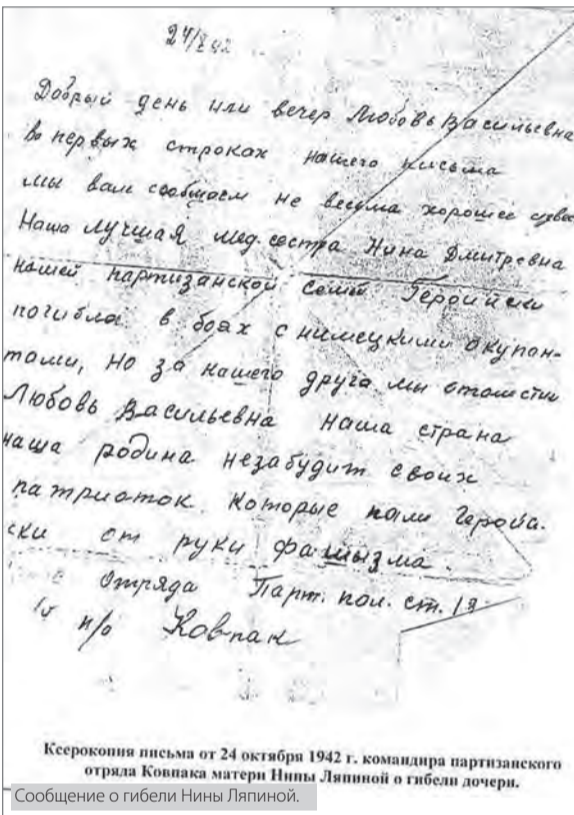 24/X 42
Добрый день или вечер Любовь Васильевна
во первых строках нашего письма
мы вам сообщаем не весьма хорошее
Наша лучшая мед. сестра Нина Дмитревна
нашей партизанской семьи Геройски
погибла в боях с нимецкими окупан-
тами, но за нашего друга мы отомстим
Любовь Васильевна наша страна
наша родина незабудит своих
патриоток. Которые пали Геройа-
ски от руки фашызма.
Отряда Парт. пол. ст.
п/о Ковпак
Ксерокопия письма от 24 октября 1942 г. командира партизанского
отряда Ковпака матери Нины Ляпиной о гибели дочери.
Сообщение о гибели Нины Ляпиной.